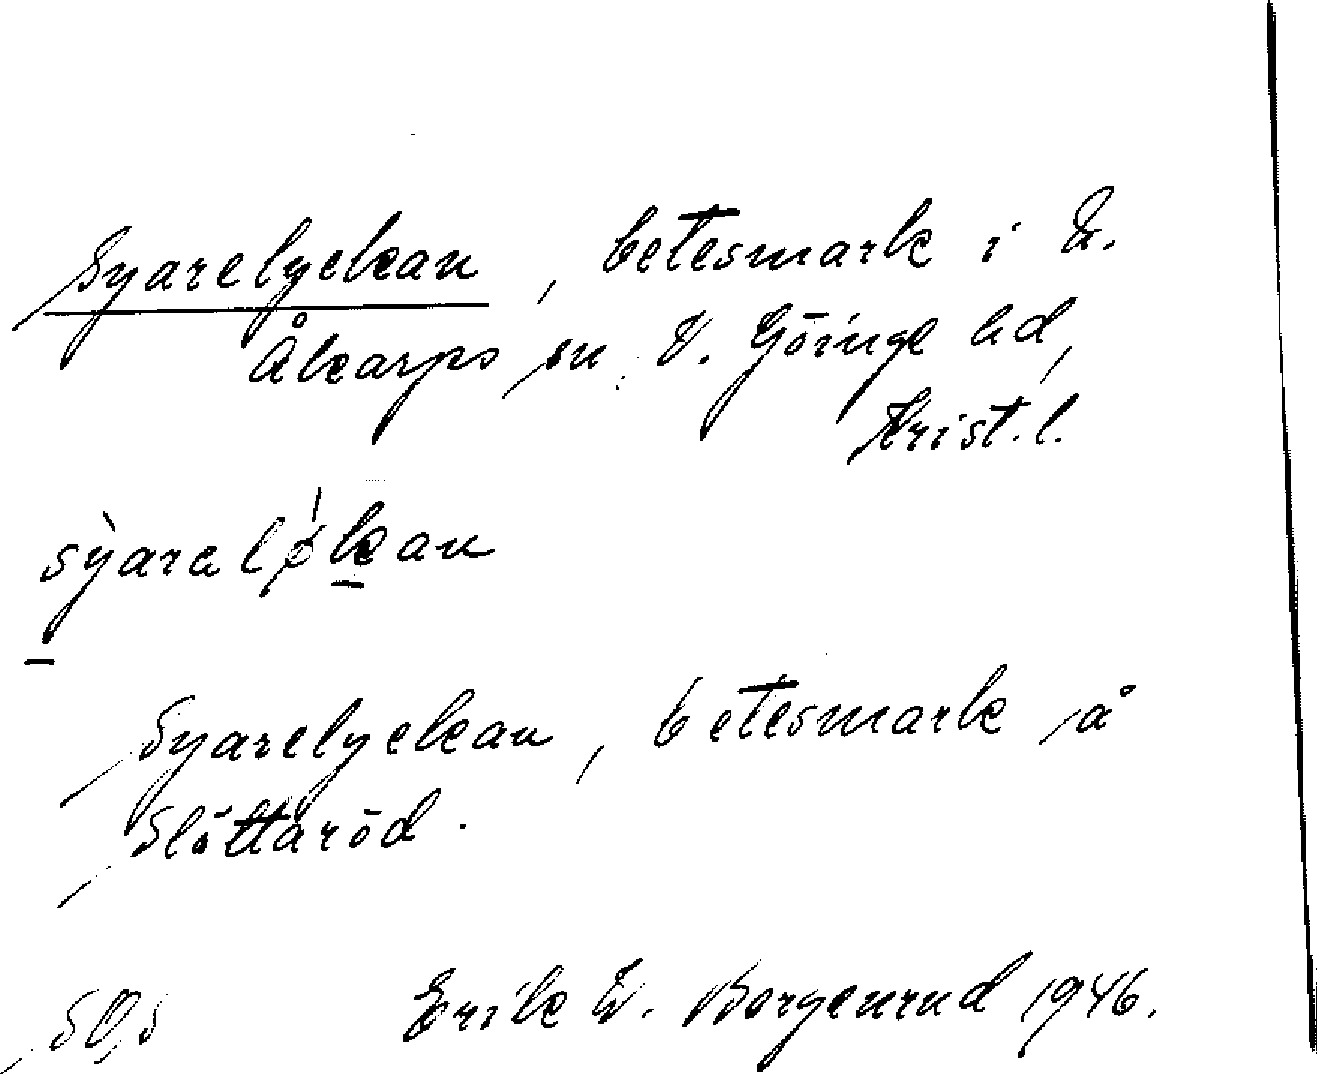 Syarelyckan, betesmark i N.
Åkarps sn V. Göinge hd,
Krist. l.
sỳarelø̍kan
Syarelyckan, betesmark å
Slättaröd.
Erik W. Borgenrud 1946.